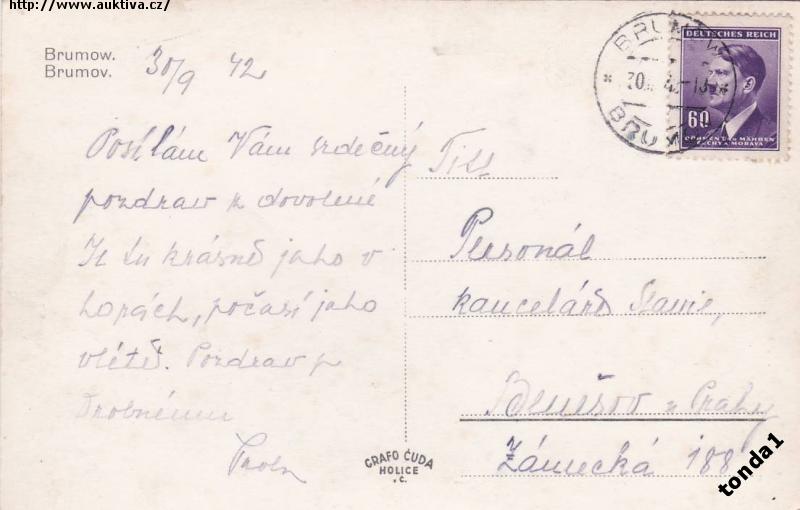 http://www.auktiva.cz/
Brumow.
Brumov.
30/9 42
Posílám Vám srdečný
pozdrav z dovolené
Je tu krásně jako v
horách, počasí jako
v létě. Pozdrav p
Drobnému
DEUTSCHES REICH
60
BÖHMEN u. MÄHREN
ČECHY A MORAVA
BRUMOW
BRUMOV
Tit.
Personál
kanceláře
Benešov u Prahy
Zámecká 188
GRAFO ČUDA
HOLICE
v Č.
tonda1